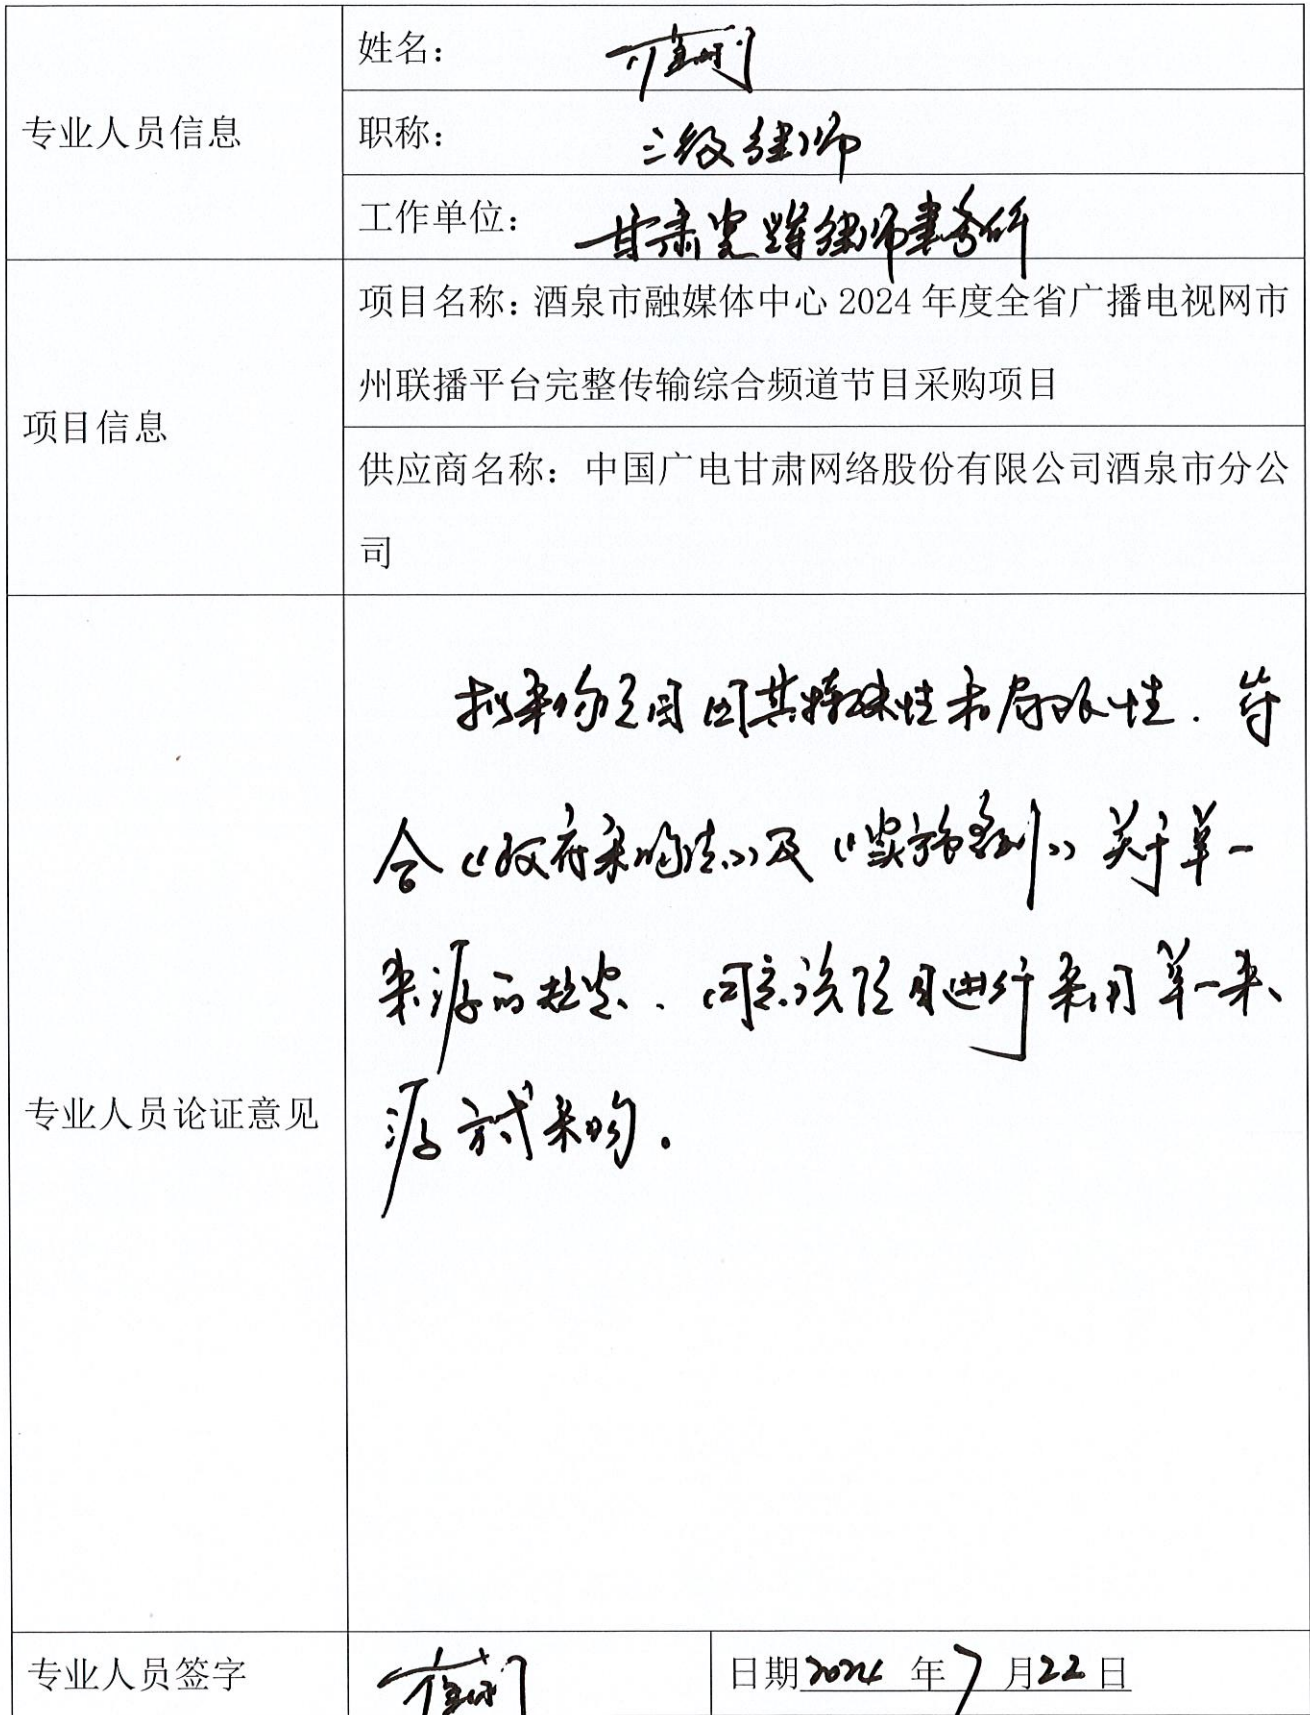 专业人员信息
姓名：
职称： 三级律师
工作单位： 甘肃光辉律师事务所
项目信息
项目名称：酒泉市融媒体中心 2024 年度全省广播电视网市
州联播平台完整传输综合频道节目采购项目
供应商名称：中国广电甘肃网络股份有限公司酒泉市分公
司
专业人员论证意见
拟采购项目因其特殊性和局限性. 符
合《政府采购法》及《实施条例》关于单一
来源的规定、同意该项目进行采用单一来
源方式采购。
专业人员签字
日期2024 年7 月22日